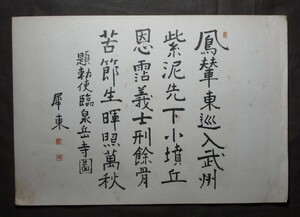 鳳輦東巡入武州
紫泥先下小墳丘
恩霑義士刑餘骨
苦節生暉照萬秋
題勅使臨泉岳寺圖
犀東